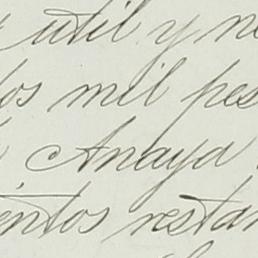 util y ne
los mil pes
Anaya
entos restan